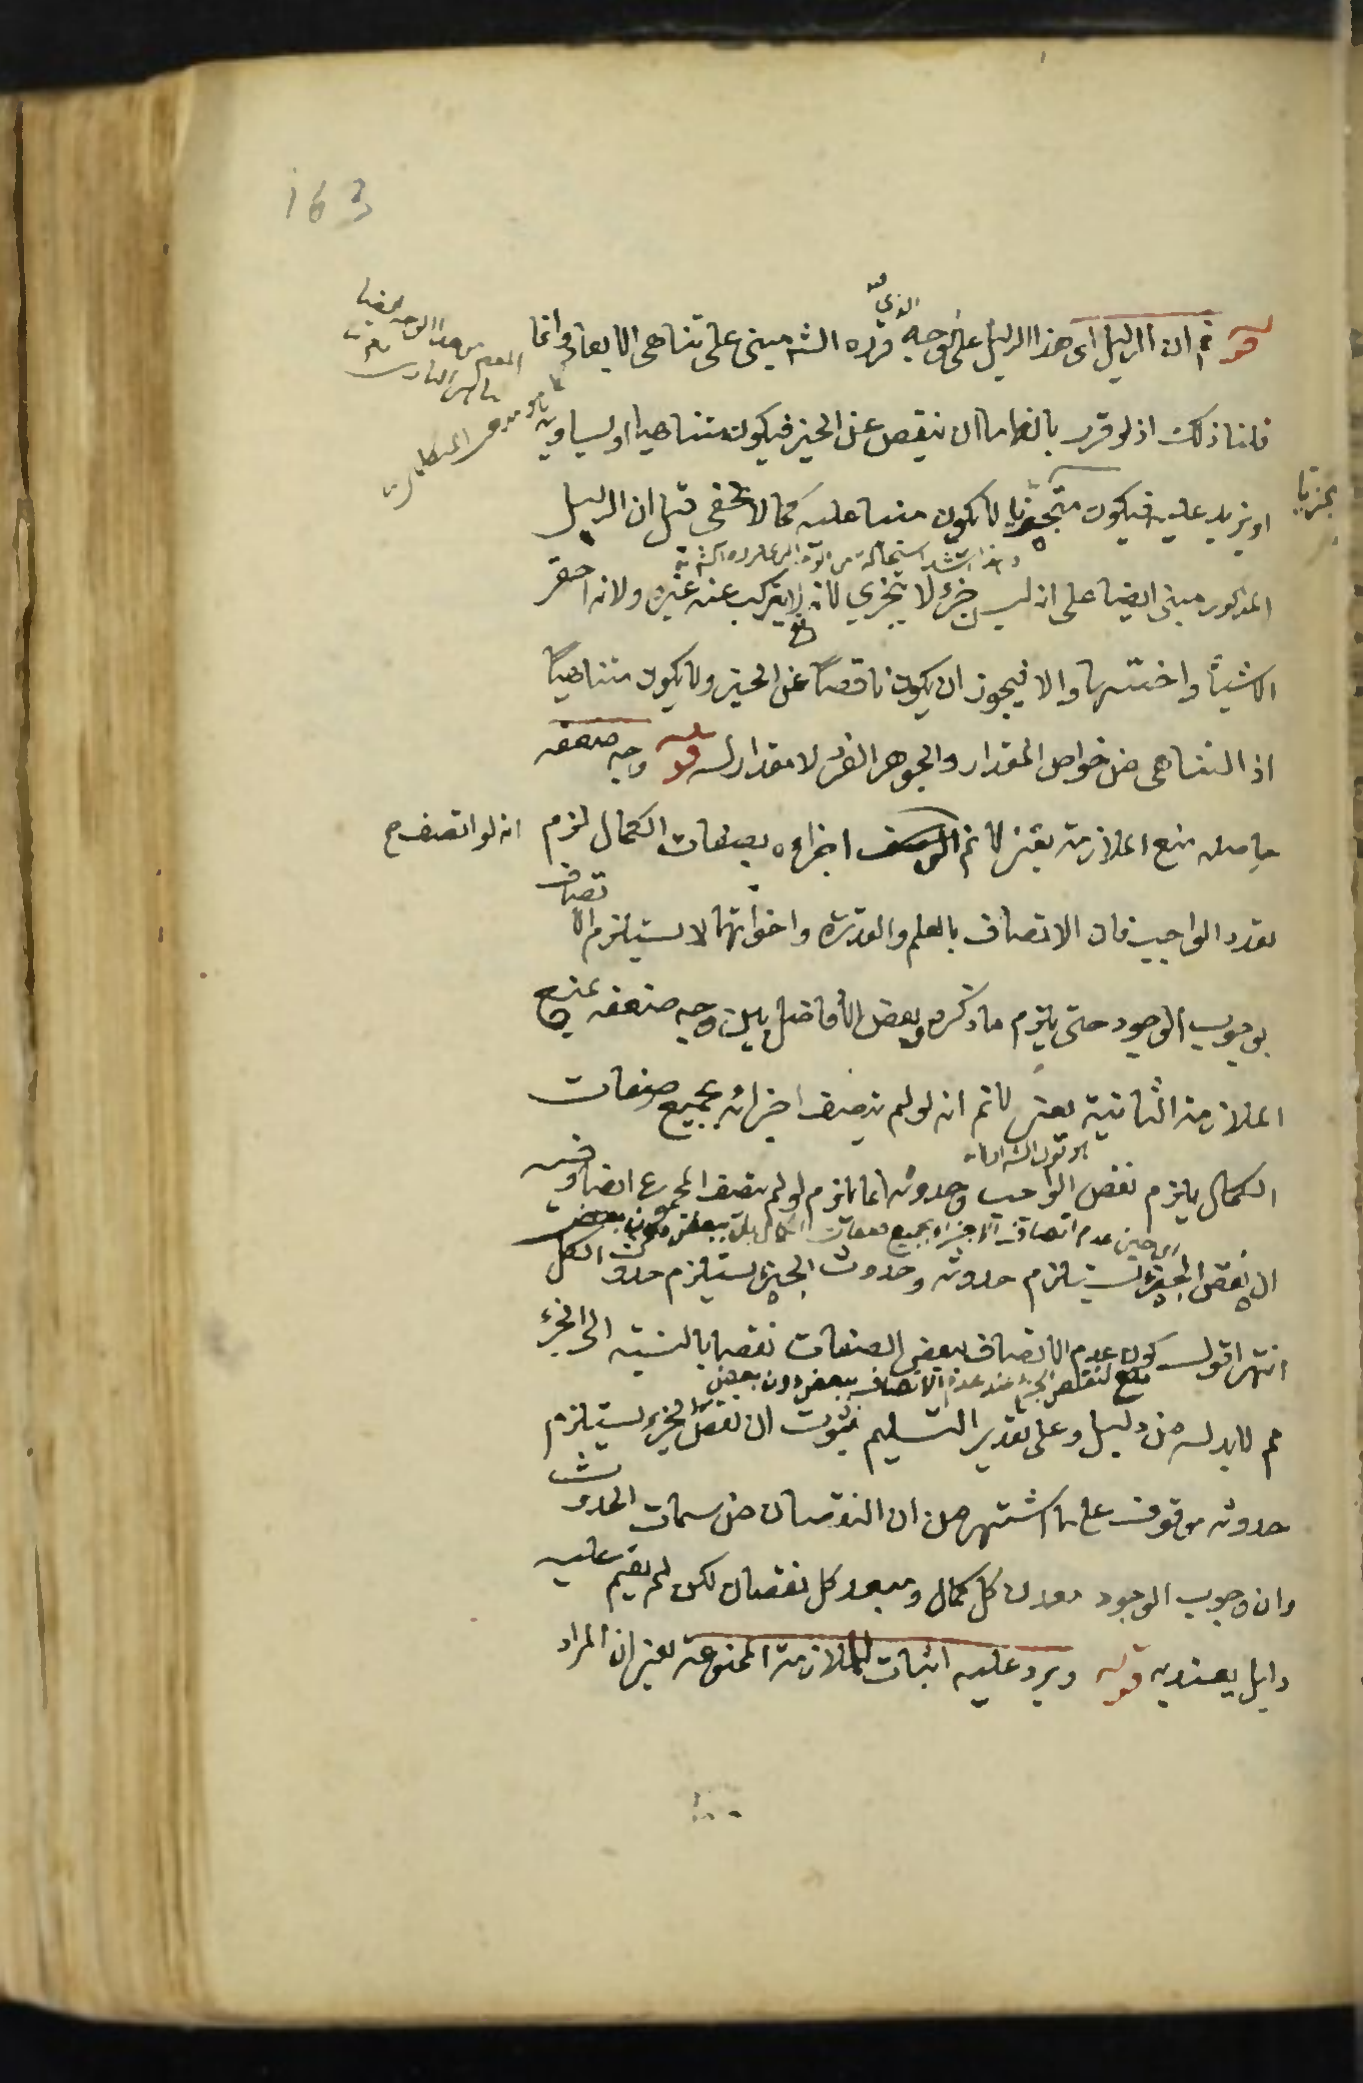 163
قوله ثم ان الدليل اى هذا الدليل على الوجه الذى قرره الشه مبنى على تناهى الابعاد وانما
قلنا ذلك اذ لو قرر بانه اما ان ينقص عن الحيز فيكون متناهيا او يساويه
او يزيد عليه فيكون متجزيا لا يكون مبنيا عليه كما لا يخفى قيل ان الدليل
متجزيا
المذكور مبنى ايضا على انه ليس جزء لا يتجزى لانه لا يتركب عنه غيره ولانه احقر
الاشياء واخسها والا فيجوز ان يكون ناقصا عن الحيز ولا يكون متناهيا
اذ التناهى من خواص المقدار والجوهر الفرد لا مقدار له قوله وجه ضعفه
حاصله منع الملازمة يعنى لانم انه لو اتصف اجزاؤه بصفات الكمال لزم
تعدد الواجب فان الاتصاف بالعلم والقدرة واخواتها لا يستلزم الاتصاف
بوجوب الوجود حتى يلزم ما ذكره وبعض الافاضل بين وجه ضعفه بمنع
الملازمة الثانية يعنى لانم انه لو لم يتصف اجزائه بجميع صفات
الكمال يلزم نقص الواجب وحدوثه انما يلزم لو لم يتصف المجموع ايضا وفيه
اى حين عدم اتصاف الاجزاء بجميع صفات الكمال بل ببعض دون بعض
ان نقص الجزء يستلزم حدوثه وحدوث الجزء يستلزم حدوث الكل
انتهى اقول كون عدم الاتصاف ببعض الصفات نقصا بالنسبة الى الجزء
منع لنقص الجزء عند عدم الاتصاف ببعض دون بعض
مم لا بد له من دليل وعلى تقدير التسليم فثبوت ان نقص الجزء يستلزم
حدوثه موقوف على ما اشتهر من ان النقصان من سمات الحدوث
وان وجوب الوجود معدن كل كمال ومبعد كل نقصان لكن لم يقم عليه
دليل يعتد به قوله ويرد عليه اثبات للملازمة الممنوعة يعنى ان المراد